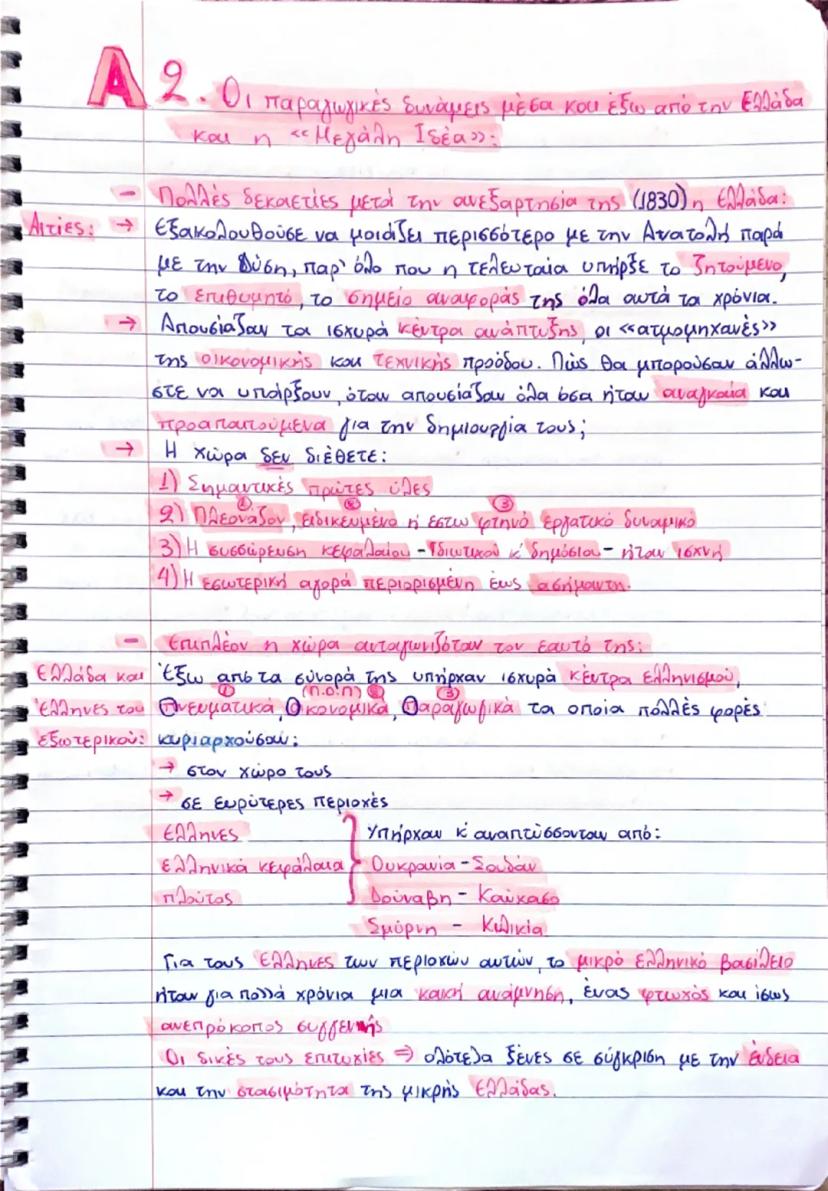 Α 2. Οι παραγωγικές δυνάμεις μέσα και έξω από την Ελλάδα
και η «Μεγάλη Ιδέα»:
- Πολλές δεκαετίες μετά την ανεξαρτησία της (1830) η Ελλάδα:
Αιτίες: → Εξακολουθούσε να μοιάζει περισσότερο με την Ανατολή παρά
με την Δύση, παρ' όλο που η τελευταία υπήρξε το ζητούμενο,
το επιθυμητό, το σημείο αναφοράς της όλα αυτά τα χρόνια.
→ Απουσίαζαν τα ισχυρά κέντρα ανάπτυξης, οι «ατμομηχανές»
της οικονομικής και τεχνικής προόδου. Πώς θα μπορούσαν άλλω-
στε να υπάρξουν, όταν απουσίαζαν όλα όσα ήταν αναγκαία και
προαπαιτούμενα για την δημιουργία τους;
→ Η χώρα δεν διέθετε:
1) Σημαντικές πρώτες ύλες
① ② ③
2) Πλεονάζον, ειδικευμένο ή έστω φτηνό εργατικό δυναμικό
3) Η συσσώρευση κεφαλαίου - Ιδιωτικού κ' δημόσιου - ήταν ισχνή
4) Η εσωτερική αγορά περιορισμένη έως ασήμαντη.
- Επιπλέον η χώρα ανταγωνιζόταν τον εαυτό της:
Ελλάδα και Έξω από τα σύνορά της υπήρχαν ισχυρά κέντρα ελληνισμού,
① (Π.Ο.Π) ② ③
Έλληνες του Πνευματικά, Οικονομικά, Παραγωγικά τα οποία πολλές φορές
εξωτερικού: κυριαρχούσαν:
→ στον χώρο τους
→ σε ευρύτερες περιοχές
Έλληνες } Υπήρχαν κ' αναπτύσσονταν από:
ελληνικά κεφάλαια Ουκρανία - Σουδάν
πλούτος Δούναβη - Καύκασο
Σμύρνη - Κιλικία
Για τους Έλληνες των περιοχών αυτών, το μικρό ελληνικό βασίλειο
ήταν για πολλά χρόνια μια κακή ανάμνηση, ένας φτωχός και ίσως
ανεπρόκοπος συγγενής
Οι δικές τους επιτυχίες ⇒ ολότελα ξένες σε σύγκριση με την ένδεια
και την στασιμότητα της μικρής Ελλάδας.